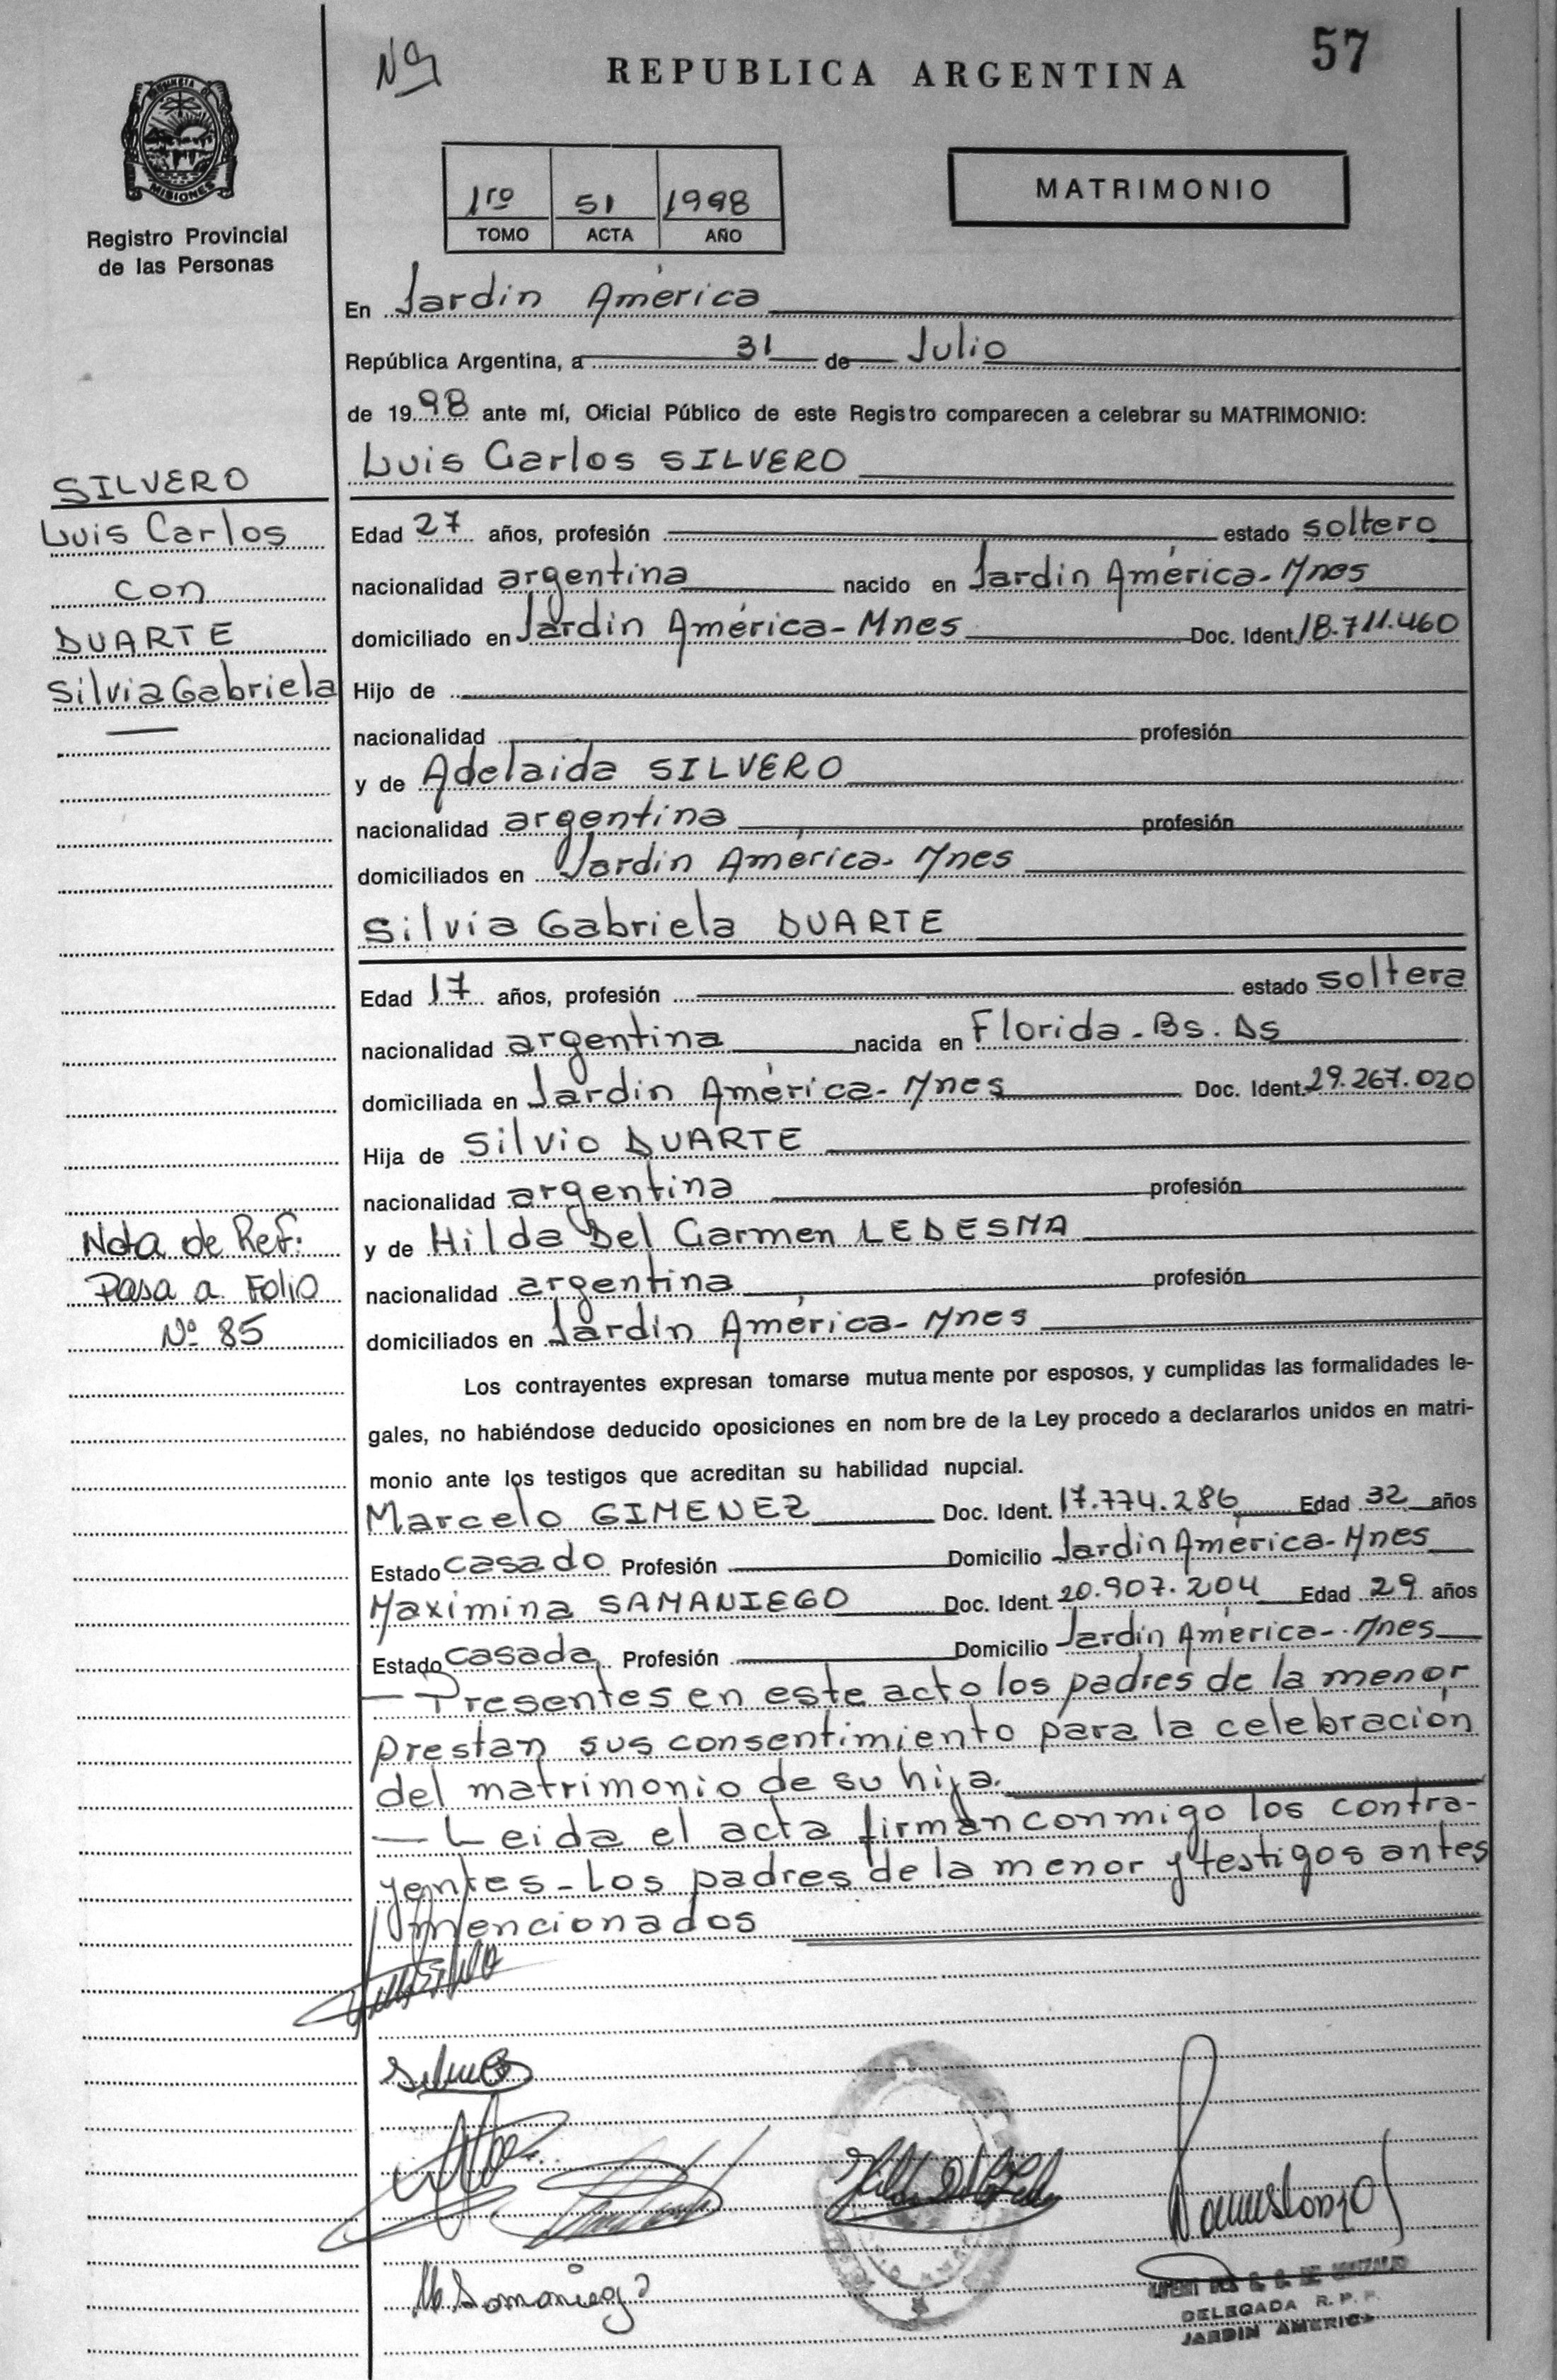 57
REPUBLICA ARGENTINA
MISIONES
Registro Provincial
de las Personas
1ro 51 1998
TOMO ACTA AÑO
MATRIMONIO
En Jardín América
República Argentina, a 31 de Julio
de 1998 ante mí, Oficial Público de este Registro comparecen a celebrar su MATRIMONIO:
Luis Carlos SILVERO
SILVERO
Luis Carlos
con
DUARTE
Silvia Gabriela
Edad 27 años, profesión estado soltero
nacionalidad argentina nacido en Jardín América-Mnes
domiciliado en Jardín América-Mnes Doc. Ident. 18.711.460
Hijo de
nacionalidad profesión
y de Adelaida SILVERO
nacionalidad argentina profesión
domiciliados en Jardín América-Mnes
Silvia Gabriela DUARTE
Edad 17 años, profesión estado soltera
nacionalidad argentina nacida en Florida-Bs.As
domiciliada en Jardín América-Mnes Doc. Ident. 29.267.020
Hija de Silvio DUARTE
nacionalidad argentina profesión
y de Hilda Del Carmen LEDESMA
nacionalidad argentina profesión
domiciliados en Jardín América-Mnes
Nota de Ref:
Pasa a Folio
Nº 85
Los contrayentes expresan tomarse mutuamente por esposos, y cumplidas las formalidades le-
gales, no habiéndose deducido oposiciones en nombre de la Ley procedo a declararlos unidos en matri-
monio ante los testigos que acreditan su habilidad nupcial.
Marcelo GIMENEZ Doc. Ident. 17.774.286 Edad 32 años
Estado casado Profesión Domicilio Jardín América-Mnes
Maximina SAMANIEGO Doc. Ident. 20.907.204 Edad 29 años
Estado casada Profesión Domicilio Jardín América-Mnes
- Presentes en este acto los padres de la menor
prestan sus consentimiento para la celebración
del matrimonio de su hija.
- Leida el acta firman conmigo los contra-
yentes - Los padres de la menor y testigos antes
mencionados
M. Samaniego
DELEGADA R.P.P.
JARDIN AMERICA